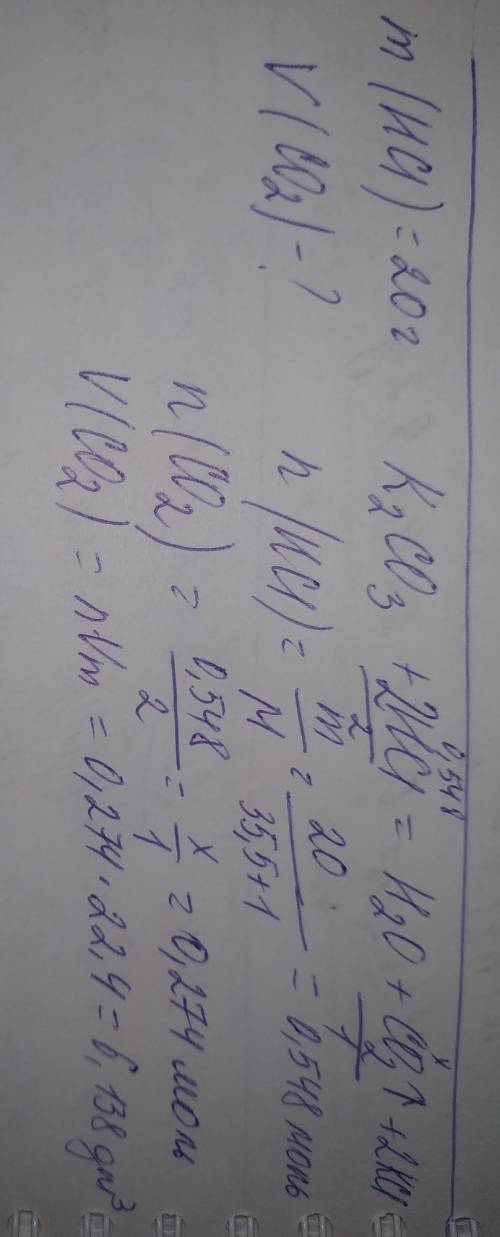 m(HCl) = 20г
V(CO₂) - ?
K₂CO₃ + 2HCl = H₂O + CO₂↑ + 2KCl
0,548 x
2 1
n(HCl) = m/M = 20/35,5+1 = 0,548 моль
n(CO₂) = 0,548/2 = x/1 = 0,274 моль
V(CO₂) = nVm = 0,274 · 22,4 = 6,138 дм³